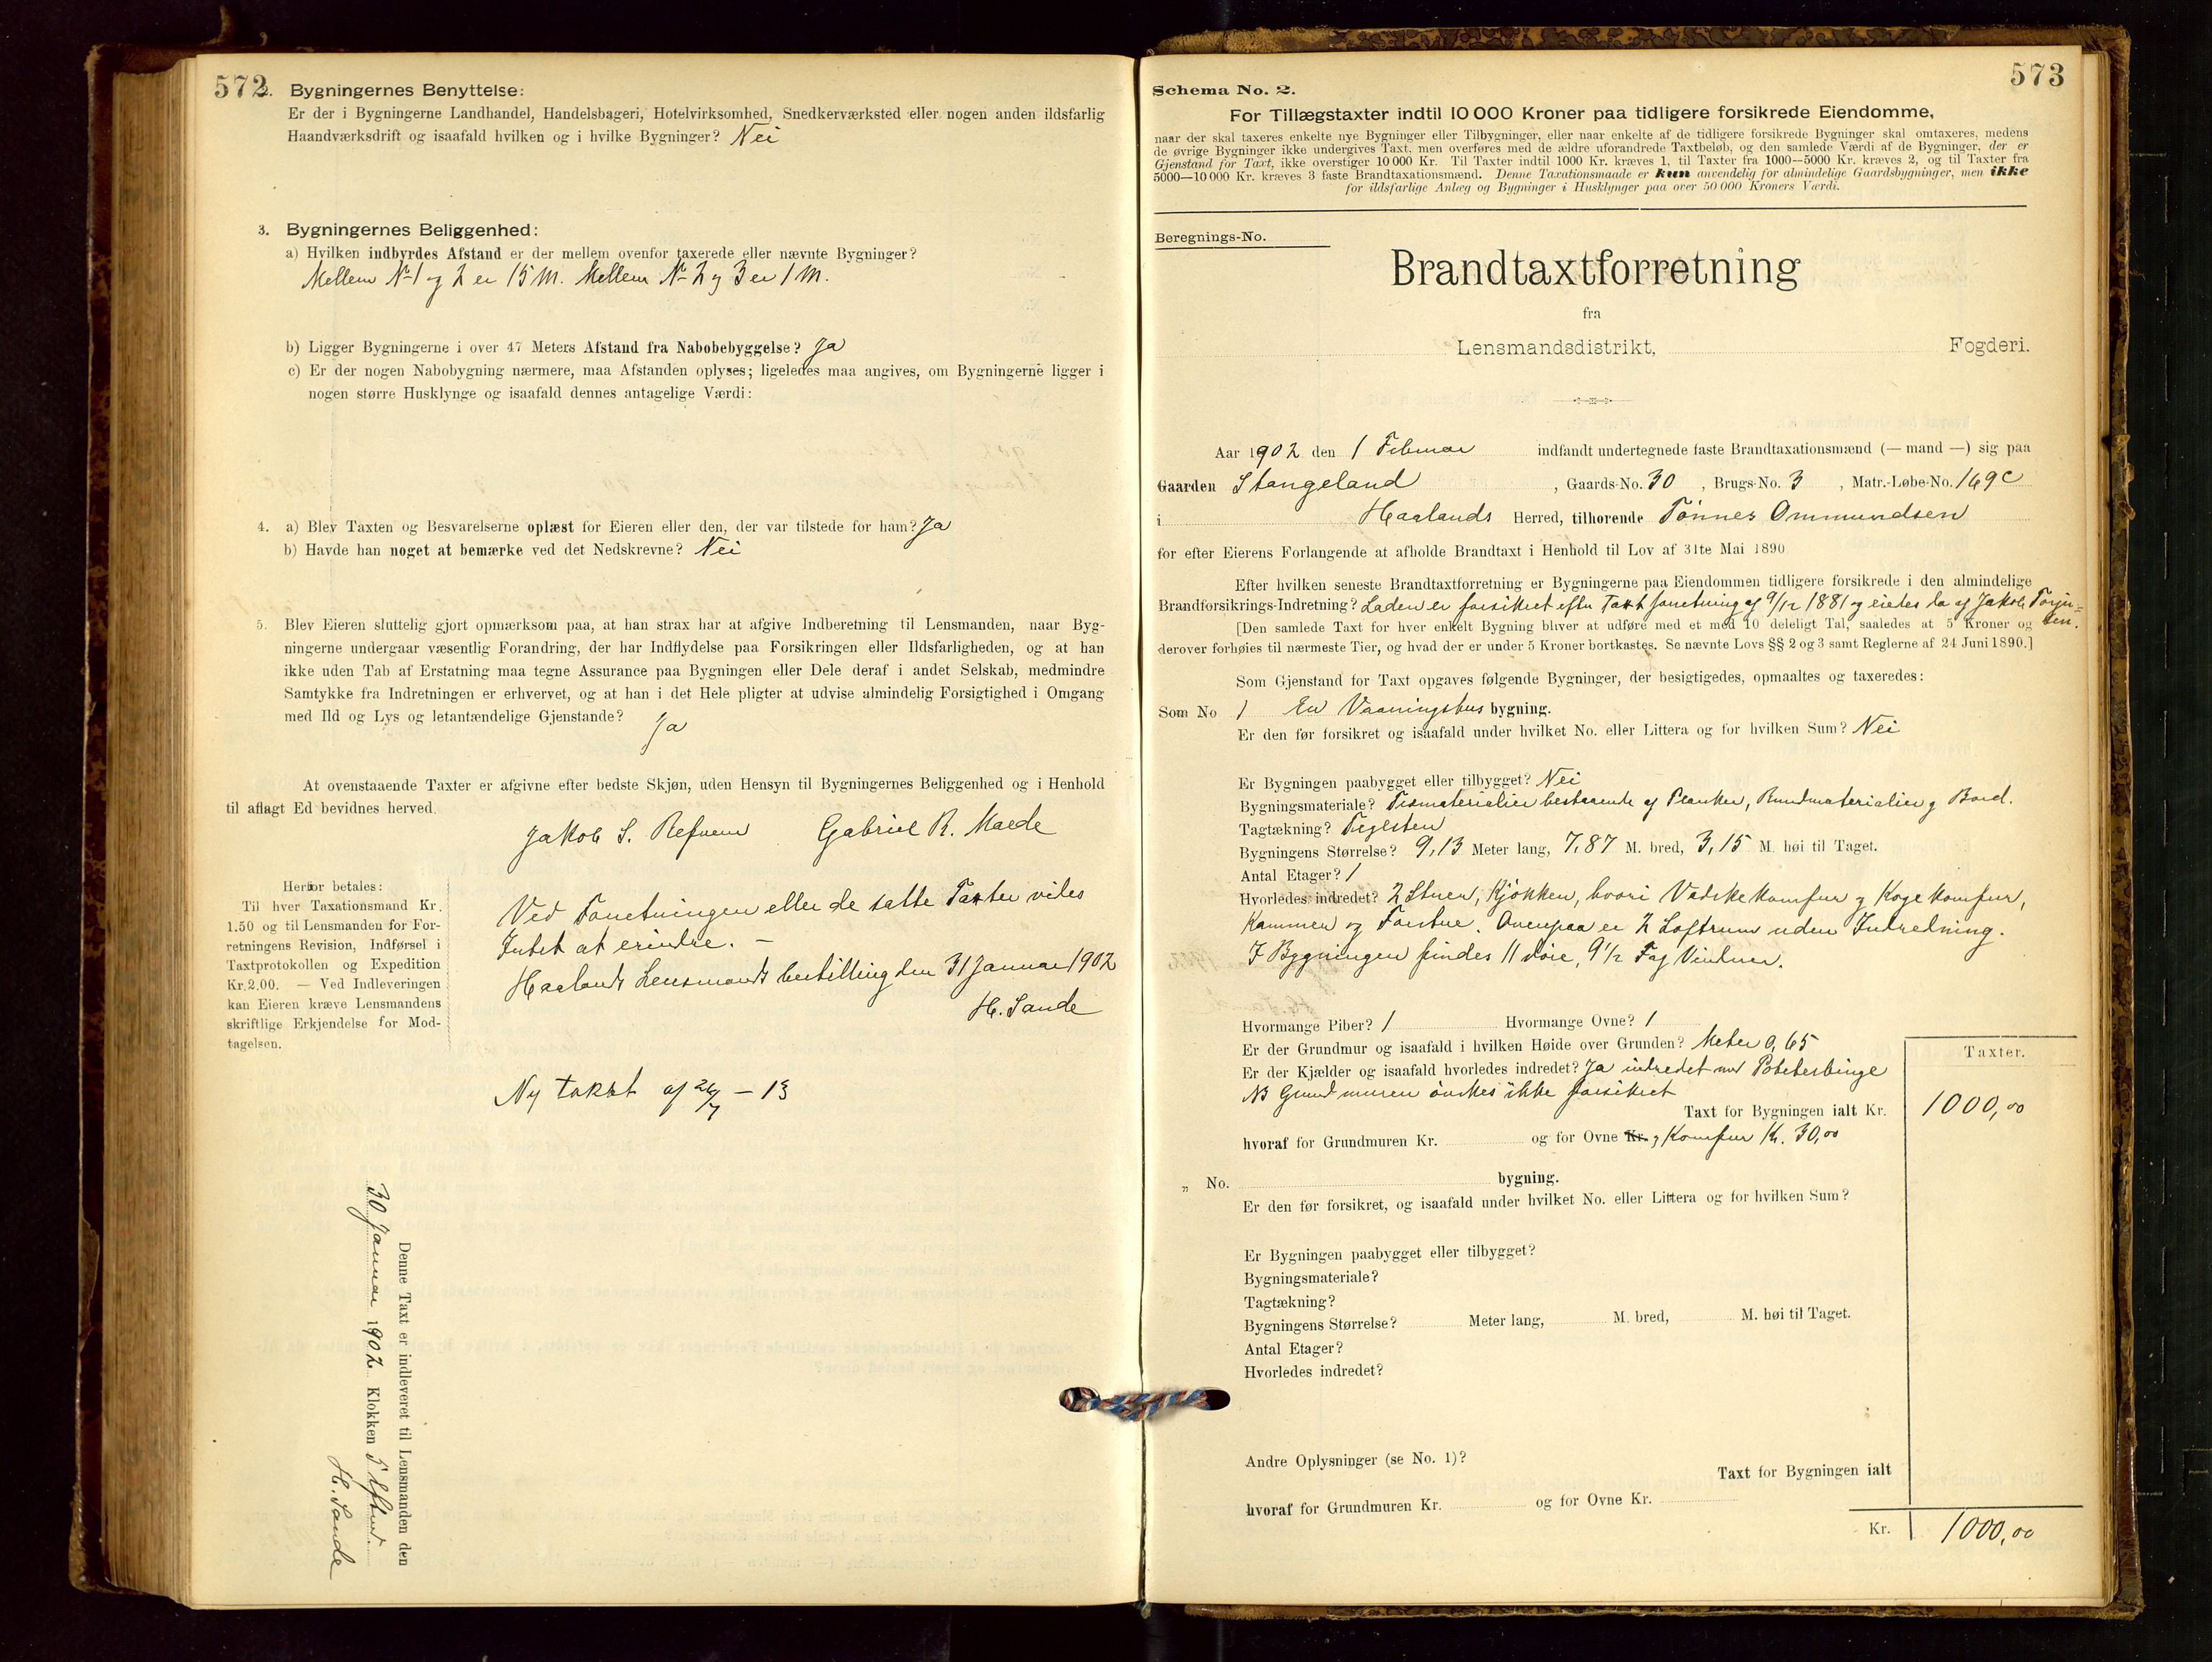 572
2. Bygningernes Benyttelse:
Er der i Bygningerne Landhandel, Handelsbageri, Hotelvirksomhed, Snedkerværksted eller nogen anden ildsfarlig
Haandværksdrift og isaafald hvilken og i hvilke Bygninger? Nei
3. Bygningernes Beliggenhed:
a) Hvilken indbyrdes Afstand er der mellem ovenfor taxerede eller nævnte Bygninger?
Mellem No 1 og 2 er 15 M. Mellem No 2 og 3 er 1 M.
b) Ligger Bygningerne i over 47 Meters Afstand fra Nabobebyggelse? Ja
c) Er der nogen Nabobygning nærmere, maa Afstanden oplyses; ligeledes maa angives, om Bygningerne ligger i
nogen større Husklynge og isaafald dennes antagelige Værdi:
4. a) Blev Taxten og Besvarelserne oplæst for Eieren eller den, der var tilstede for ham? Ja
b) Havde han noget at bemærke ved det Nedskrevne? Nei
5. Blev Eieren sluttelig gjort opmærksom paa, at han strax har at afgive Indberetning til Lensmanden, naar Byg-
ningerne undergaar væsentlig Forandring, der har Indflydelse paa Forsikringen eller Ildsfarligheden, og at han
ikke uden Tab af Erstatning maa tegne Assurance paa Bygningen eller Dele deraf i andet Selskab, medmindre
Samtykke fra Indretningen er erhvervet, og at han i det Hele pligter at udvise almindelig Forsigtighed i Omgang
med Ild og Lys og letantændelige Gjenstande? Ja
At ovenstaaende Taxter er afgivne efter bedste Skjøn, uden Hensyn til Bygningernes Beliggenhed og i Henhold
til aflagt Ed bevidnes herved.
Jakob S. Refvem Gabriel R. Malde
Herfor betales:
Til hver Taxationsmand Kr.
1.50 og til Lensmanden for For-
retningens Revision, Indførsel i
Taxtprotokollen og Expedition
Kr. 2.00. — Ved Indleveringen
kan Eieren kræve Lensmandens
skriftlige Erkjendelse for Mod-
tagelsen.
Ved Forretningen eller de satte Taxter vides
Intet at erindre. —
Haalands Lensmands bestilling den 31 Januar 1902
H. Sande
Ny takst af 26/7 – 13
Denne Taxt er indleveret til Lensmanden den
30 Januar 1902 Klokken 5 Efterm.
H. Sande
573
Schema No. 2.
For Tillægstaxter indtil 10 000 Kroner paa tidligere forsikrede Eiendomme,
naar der skal taxeres enkelte nye Bygninger eller Tilbygninger, eller naar enkelte af de tidligere forsikrede Bygninger skal omtaxeres, medens
de øvrige Bygninger ikke undergives Taxt, men overføres med de ældre uforandrede Taxtbeløb, og den samlede Værdi af de Bygninger, der er
Gjenstand for Taxt, ikke overstiger 10 000 Kr. Til Taxter indtil 1000 Kr. kræves 1, til Taxter fra 1000—5000 Kr. kræves 2, og til Taxter fra
5000—10 000 Kr. kræves 3 faste Brandtaxationsmænd. Denne Taxationsmaade er kun anvendelig for almindelige Gaardsbygninger, men ikke
for ildsfarlige Anlæg og Bygninger i Husklynger paa over 50 000 Kroners Værdi.
Beregnings-No.
Brandtaxtforretning
fra
Lensmandsdistrikt, Fogderi.
Aar 1902 den 1 Februar indfandt undertegnede faste Brandtaxationsmænd (— mand —) sig paa
Gaarden Stangeland, Gaards-No. 30, Brugs-No. 3, Matr.-Løbe-No. 169c
i Haalands Herred, tilhørende Tønnes Ommundsen
for efter Eierens Forlangende at afholde Brandtaxt i Henhold til Lov af 31te Mai 1890
Efter hvilken seneste Brandtaxtforretning er Bygningerne paa Eiendommen tidligere forsikrede i den almindelige
Brandforsikrings-Indretning? Laden er forsikret efter Taxt forretning af 9/12 1881 og eiedes da af Jakob
[Den samlede Taxt for hver enkelt Bygning bliver at udføre med et med 10 deleligt Tal, saaledes at 5 Kroner og
derover forhøies til nærmeste Tier, og hvad der er under 5 Kroner bortkastes. Se nævnte Lovs §§ 2 og 3 samt Reglerne af 24 Juni 1890.]
Som Gjenstand for Taxt opgaves følgende Bygninger, der besigtigedes, opmaaltes og taxeredes:
Som No 1 En Vaaningshus bygning.
Er den før forsikret og isaafald under hvilket No. eller Littera og for hvilken Sum? Nei
Er Bygningen paabygget eller tilbygget? Nei
Bygningsmateriale? Træmaterialier bestaaende af Planker, Rundmaterialier og Bord.
Tagtækning? Teglsten
Bygningens Størrelse? 9,13 Meter lang, 7,87 M. bred, 3,15 M. høi til Taget.
Antal Etager? 1
Hvorledes indredet? 2 Stuer, Kjøkken, hvori Vadskekomfur og Kogekomfur,
Kammer og Forstue. Ovenpaa er 2 Loftrum uden Indredning.
I Bygningen findes 11 døre, 9½ Fag Vinduer.
Hvormange Piber? 1 Hvormange Ovne? 1
Er der Grundmur og isaafald i hvilken Høide over Grunden? Meter 0,65
Er der Kjælder og isaafald hvorledes indredet? Ja indredet med Potetesbinge
NB Grundmuren ønskes ikke forsikret
Taxter.
Taxt for Bygningen ialt Kr. 1000,00
hvoraf for Grundmuren Kr. og for Ovne Kr. og Komfur Kr. 30,00
„ No. bygning.
Er den før forsikret, og isaafald under hvilket No. eller Littera og for hvilken Sum?
Er Bygningen paabygget eller tilbygget?
Bygningsmateriale?
Tagtækning?
Bygningens Størrelse? Meter lang, M. bred, M. høi til Taget.
Antal Etager?
Hvorledes indredet?
Andre Oplysninger (se No. 1)?
Taxt for Bygningen ialt
hvoraf for Grundmuren Kr. og for Ovne Kr.
Kr. 1000,00